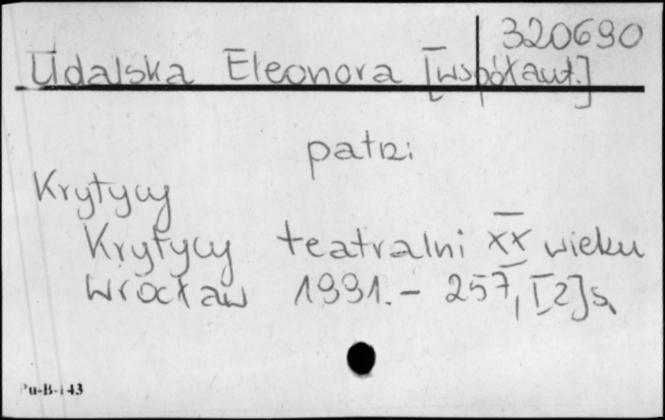 320690
Udalska Eleonora [współaut.]
patrz:
Krytycy
Krytycy teatralni XX wieku
Wrocław 1991. – 257, [2] s.
Pu-B-143